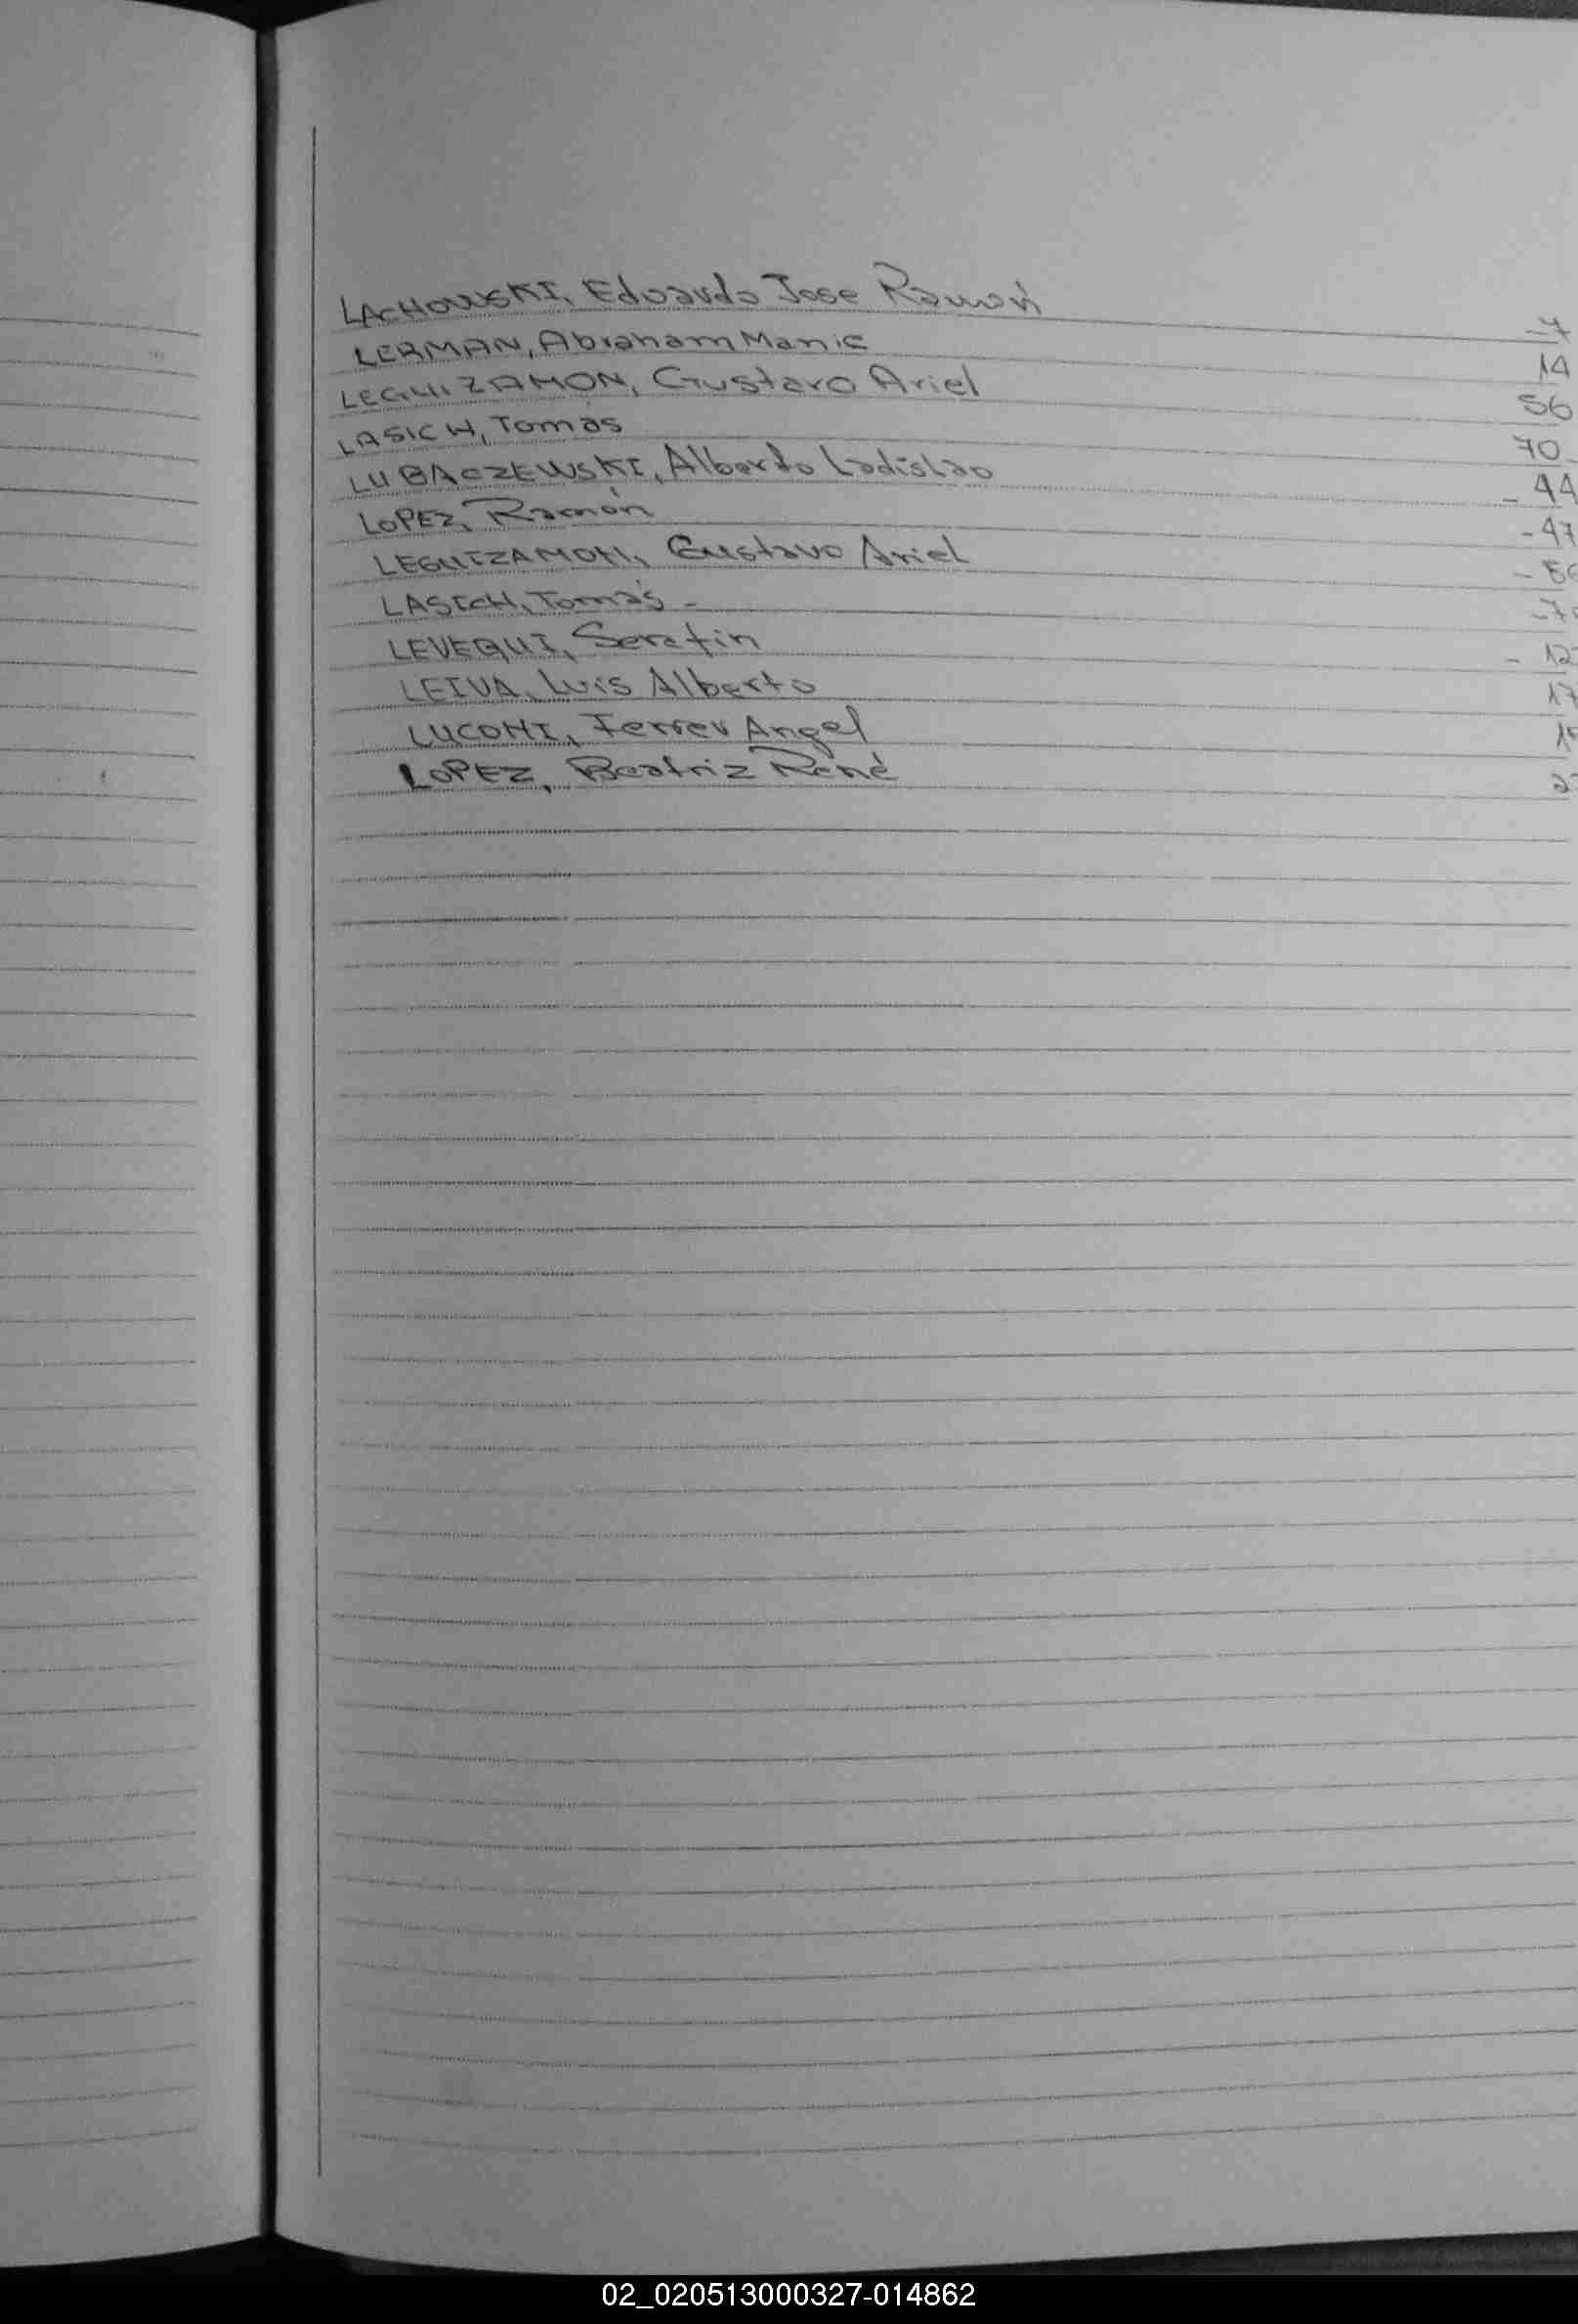 LACHOWSKI, Eduardo Jose Ramón -7
LERMAN, Abraham Manie 14
LEGUIZAMON, Gustavo Ariel 56
LASICH, Tomás 70
LUBACZEWSKI, Alberto Ladislao - 44
LOPEZ, Ramón - 47
LEGUIZAMON, Gustavo Ariel - 56
LASICH, Tomás -
LEVEQUI, Serafin - 12
LEIVA, Luis Alberto 17
LUCONI, Ferrer Angel
LOPEZ, Beatriz René
02_020513000327-014862